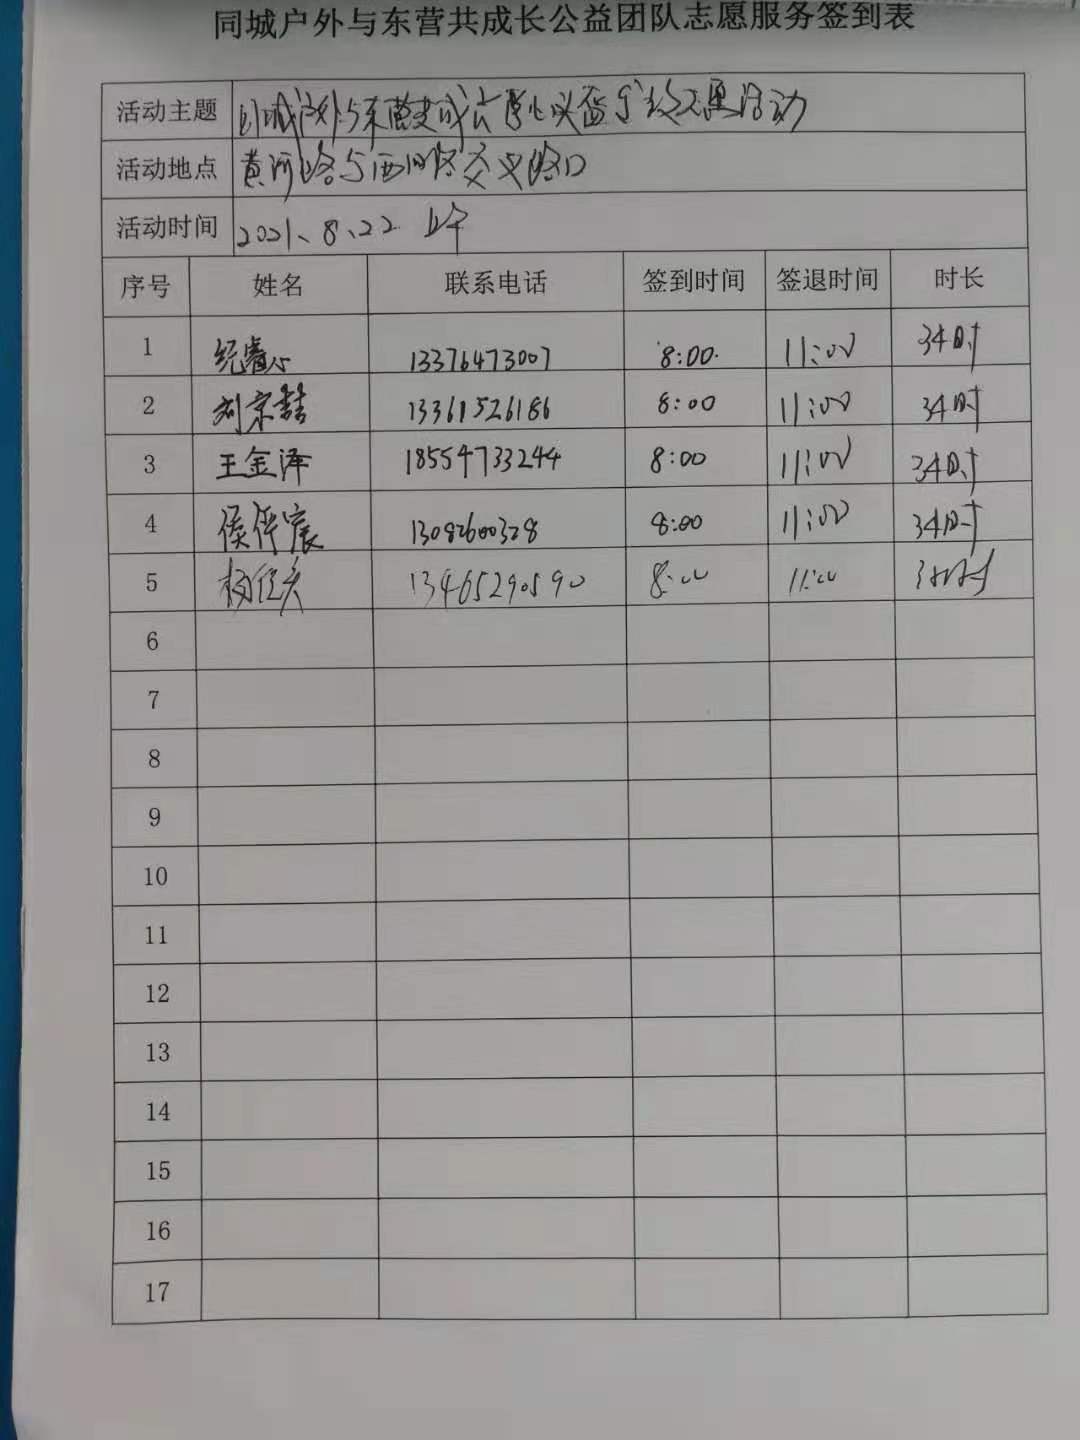 同城户外与东营共成长公益团队志愿服务签到表
活动主题 同城户外与东营共成长公益
活动地点 黄河路与西四路交叉路口
活动时间 2021、8、22 上午
序号 姓名 联系电话 签到时间 签退时间 时长
1 纪睿心 13376473007 8:00 11:00 3小时
2 刘京喆 13361526186 8:00 11:00 3小时
3 王金泽 18554733244 8:00 11:00 3小时
4 侯伊宸 13082600328 8:00 11:00 3小时
5 13465290590 8:00 11:00 3小时
6
7
8
9
10
11
12
13
14
15
16
17